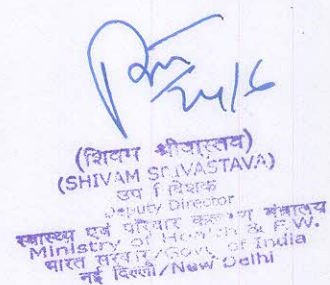 24/6
(शिवम श्रीवास्तव)
(SHIVAM SRIVASTAVA)
उप निदेशक
Deputy Director
स्वास्थ्य एवं परिवार कल्याण मंत्रालय
Ministry of Health & F.W.
भारत सरकार/Govt. of India
नई दिल्ली/New Delhi